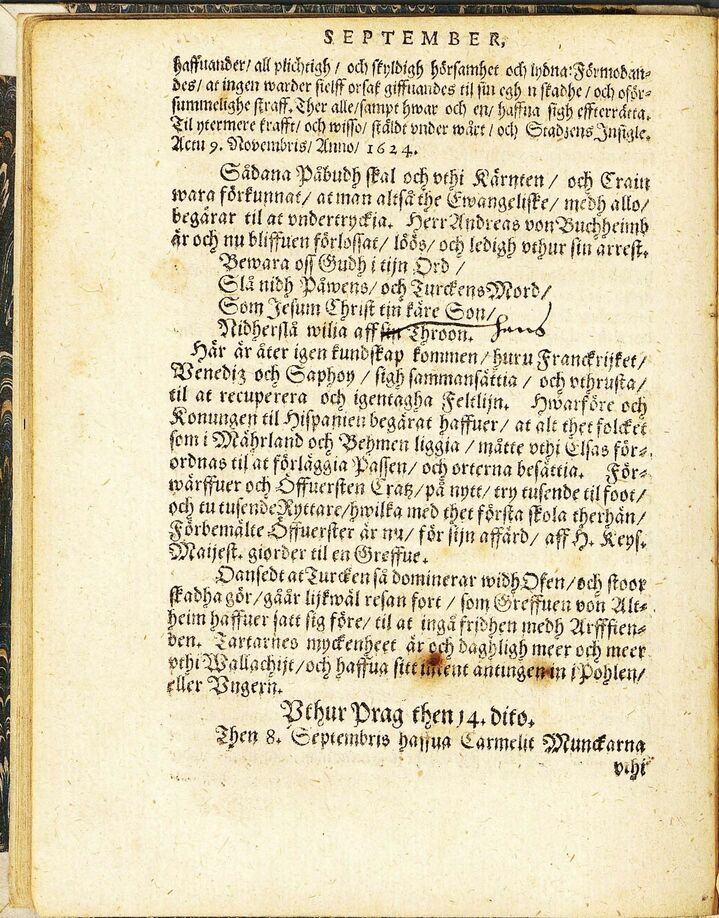 SEPTEMBER,
haffuander/ all plichtigh / och skyldigh hörsamhet och lydna: Förmodan-
des/ at ingen warder sielff orsak giffuandes til sin egh n skadhe / och oför-
summelighe straff. Ther alle/ sampt hwar och en/ haffua sigh effterrätta.
Til ytermere krafft/ och wisso/ stäldt vnder wårt/ och Stadzens Insigle.
Actu 9. Novembris/ Anno/ 1624.
Sådana Påbudh skal och vthi Kärnten / och Crain
wara förkunnat/ at man altså the Ewangeliske/ medh allo/
begärar til at vndertryckia. Herr Andreas von Buchheimb
är och nu bliffuen förlossat/ löös/ och ledigh vthur sin arrest.
Bewara oss Gudh i tijn Ord /
Slå nidh Påwens/ och Turckens Mord/
Som Jesum Christ tin käre Son/
Nidherslå wilia aff sin Throon. hans
Här är åter igen kundskap kommen / huru Franckrijket/
Venediz och Saphoy / sigh sammansättia / och vthrusta/
til at recuperera och igentagha Feltlijn. Hwarföre och
Konungen til Hispanien begärat haffuer/ at alt thet folcket
som i Mährland och Behmen liggia / måtte vthi Elsas för-
ordnas til at förläggia Passen/ och orterna besättia. För-
wärffuer och Öffuersten Cratz/ på nytt/ try tusende til foot/
och tu tusende Ryttare/ hwilka med thet första skola therhän/
Förbemälte Öffuerster är nu/ för sijn affärd/ aff H. Keys.
Maijest. giorder til en Greffue.
Oansedt at Turcken så dominerar widh Ofen/ och stoor
skadha gör/ gåår lijkwäl resan fort / som Greffuen von Alt-
heim haffuer satt sig före/ til at ingå fridhen medh Arfffien-
den. Tartarnes myckenheet är och daghligh meer och meer
vthi Wallachijt/ och haffua sitt intent antingen in i Pohlen/
eller Vngern.
Vthur Prag then 14. dito.
Then 8. Septembris haffua Carmelit Munckarna
vthi